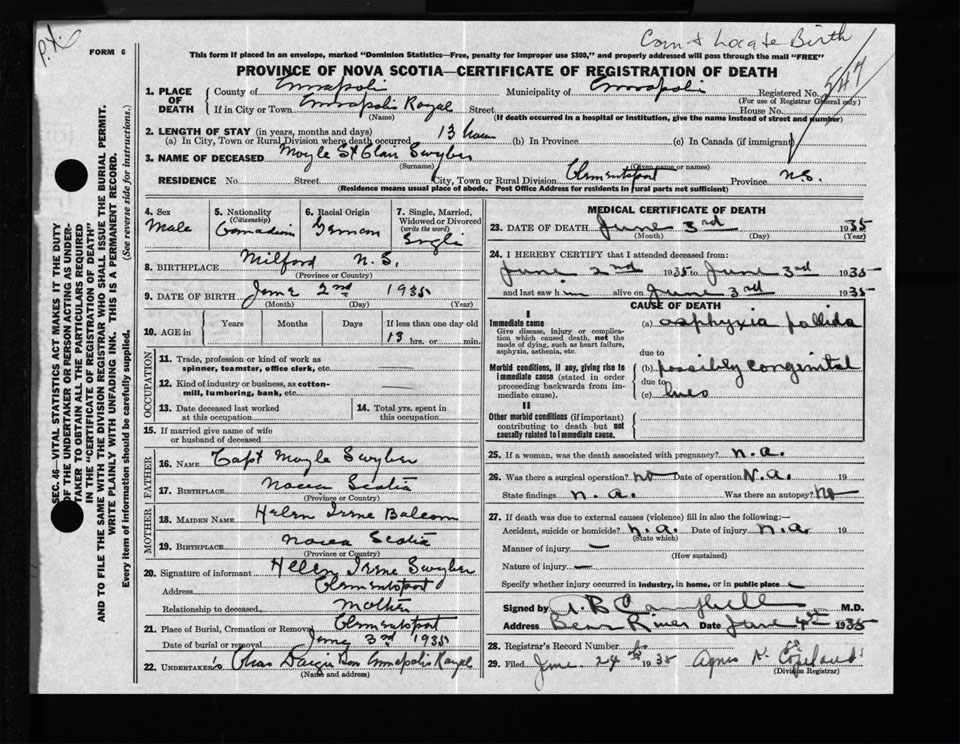 P.X.
Can't Locate Birth
547
FORM 6
This form if placed in an envelope, marked "Dominion Statistics—Free, penalty for improper use $300," and properly addressed will pass through the mail "FREE"
PROVINCE OF NOVA SCOTIA—CERTIFICATE OF REGISTRATION OF DEATH
1. PLACE OF DEATH
County of Annapolis Municipality of Annapolis Registered No.
(For use of Registrar General only)
If in City or Town Annapolis Royal Street House No.
(Name) (If death occurred in a hospital or institution, give the name instead of street and number)
2. LENGTH OF STAY (in years, months and days)
(a) In City, Town or Rural Division where death occurred 13 hours (b) In Province (c) In Canada (if immigrant)
3. NAME OF DECEASED Moyle St Clair
(Surname) (Given name or names)
RESIDENCE No. Street City, Town or Rural Division Clementsport Province N.S.
(Residence means usual place of abode. Post Office Address for residents in rural parts not sufficient)
4. Sex
Male
5. Nationality
(Citizenship)
Canadian
6. Racial Origin
German
7. Single, Married, Widowed or Divorced
(write the word)
Single
8. BIRTHPLACE Milford N.S.
(Province or Country)
9. DATE OF BIRTH June 2nd 1935
(Month) (Day) (Year)
10. AGE in
Years Months Days If less than one day old
13 hrs. or min.
OCCUPATION
11. Trade, profession or kind of work as spinner, teamster, office clerk, etc.
12. Kind of industry or business, as cotton-mill, lumbering, bank, etc.
13. Date deceased last worked at this occupation
14. Total yrs. spent in this occupation
15. If married give name of wife or husband of deceased
FATHER
16. NAME Capt Moyle
17. BIRTHPLACE Nova Scotia
(Province or Country)
MOTHER
18. MAIDEN NAME Helen Irene Balcom
19. BIRTHPLACE Nova Scotia
(Province or Country)
20. Signature of informant Helen Irene
Address Clementsport
Relationship to deceased Mother
21. Place of Burial, Cremation or Removal Clementsport
Date of burial or removal June 3rd 1935
22. UNDERTAKER'S Chas Dargie Son Annapolis Royal
(Name and address)
MEDICAL CERTIFICATE OF DEATH
23. DATE OF DEATH June 3rd 1935
(Month) (Day) (Year)
24. I HEREBY CERTIFY that I attended deceased from:
June 2nd 1935 to June 3rd 1935
and last saw him alive on June 3rd 1935
CAUSE OF DEATH
I
Immediate cause
Give disease, injury or complication which caused death, not the mode of dying, such as heart failure, asphyxia, asthenia, etc.
(a) asphyxia pallida
due to
Morbid conditions, if any, giving rise to immediate cause (stated in order proceeding backwards from immediate cause).
(b) possibly congenital
due to
(c) lues
II
Other morbid conditions (if important) contributing to death but not causally related to immediate cause.
25. If a woman, was the death associated with pregnancy? n.a.
26. Was there a surgical operation? no Date of operation N.a. 19
State findings n.a. Was there an autopsy? no
27. If death was due to external causes (violence) fill in also the following:—
Accident, suicide or homicide? n.a. Date of injury n.a. 19
(State which)
Manner of injury —
(How sustained)
Nature of injury —
Specify whether injury occurred in industry, in home, or in public place
Signed by A B Campbell M.D.
Address Bear River Date June 4th 1935
28. Registrar's Record Number
29. Filed June 24th 1935 Agnes N. Copeland
(Division Registrar)
SEC. 46—VITAL STATISTICS ACT MAKES IT THE DUTY
OF THE UNDERTAKER OR PERSON ACTING AS UNDER-
TAKER TO OBTAIN ALL THE PARTICULARS REQUIRED
IN THE "CERTIFICATE OF REGISTRATION OF DEATH"
AND TO FILE THE SAME WITH THE DIVISION REGISTRAR WHO SHALL ISSUE THE BURIAL PERMIT.
WRITE PLAINLY WITH UNFADING INK. THIS IS A PERMANENT RECORD.
Every item of information should be carefully supplied. (See reverse side for instructions.)